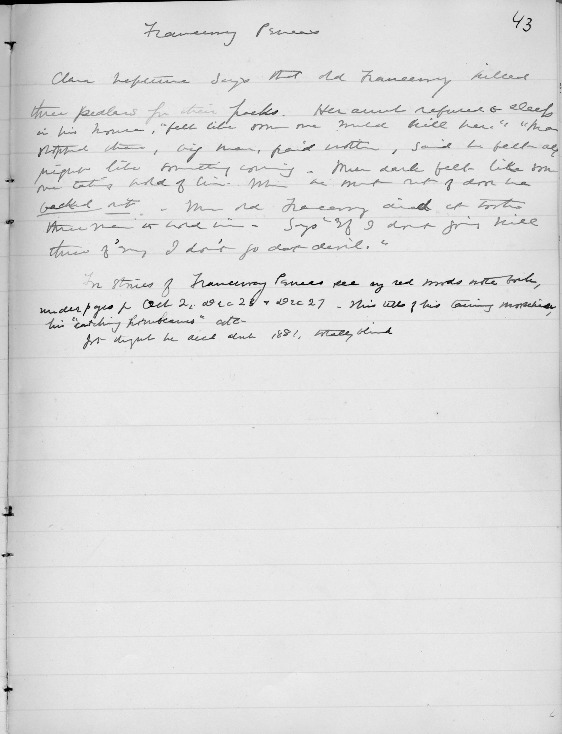 43
Franceway Peneas
Clara Neptune says that old Franceway killed
three pedlars for their packs. Her aunt refused to sleep
in his house, "felt like some one would kill her" "Man
stopped there, big man, paid nothing, said he felt all
night like something coming. When dark felt like some
one takes hold of him. When he went out of door he
backed out. When old Franceway died it took
three men to hold him. Says "If I don't going kill
three of 'em, I don't go dat devil."
For stories of Franceway Peneas see my red woods note book,
under pages for Oct 2, Dec 26 + Dec 27 - This tells of his
his "catching hornbeams" etc
Joe he died abt 1881, totally blind